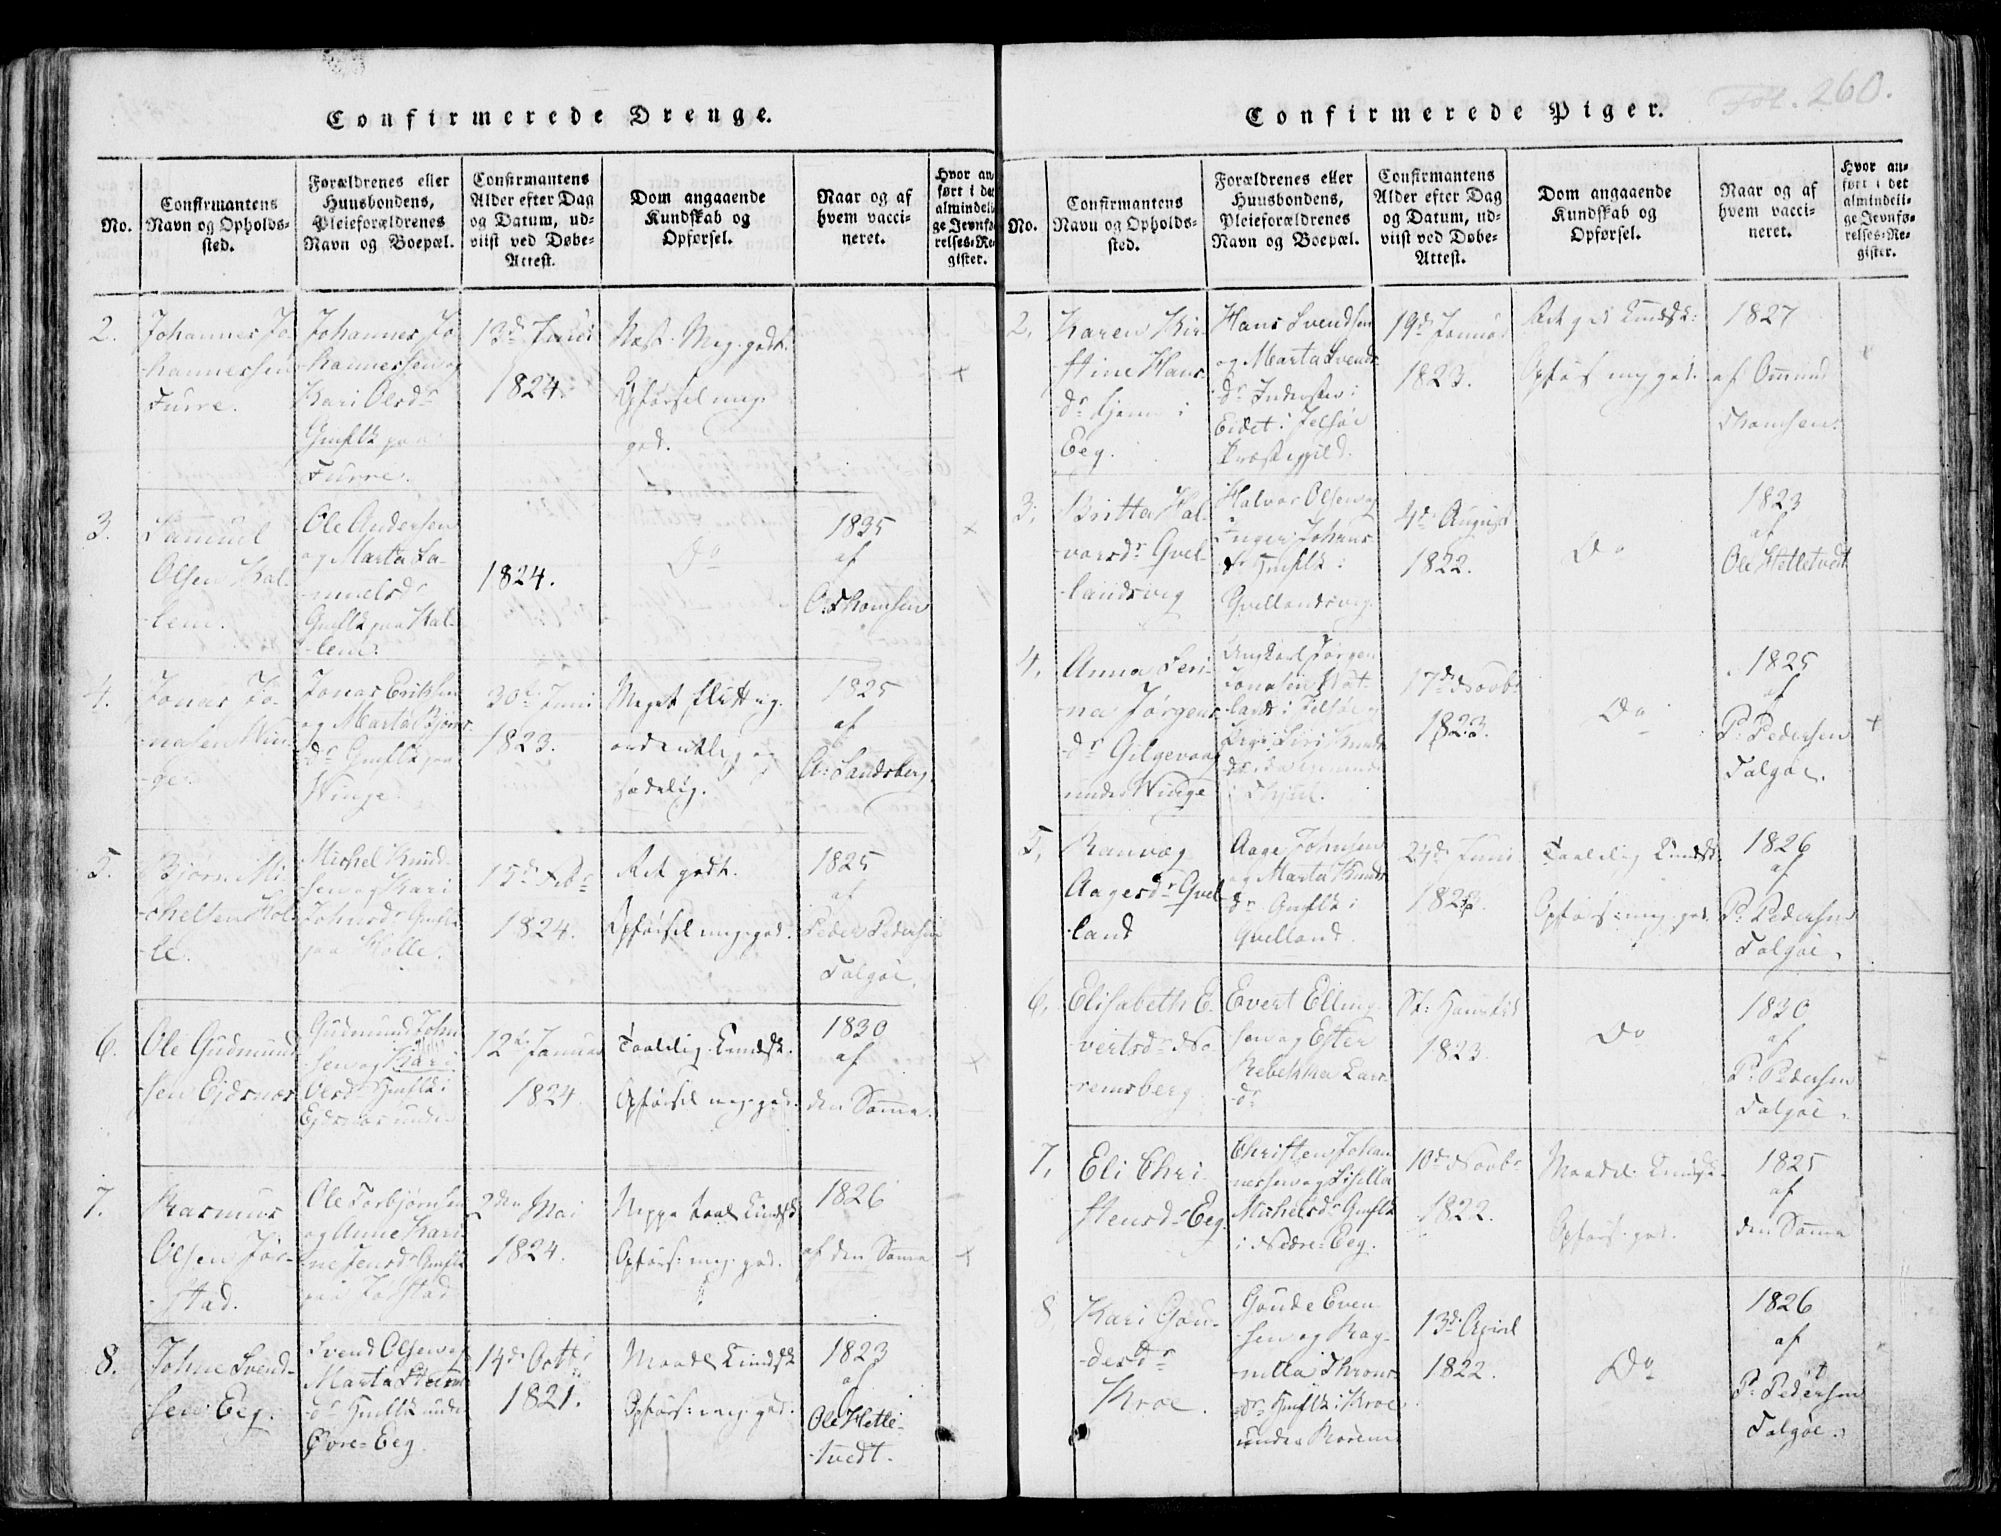 Confirmerede Drenge.
No.
Confirmantens
Navn og Opholds-
sted.
Forældrenes eller
Huusbondens,
Pleieforældrenes
Navn og Boepæl.
Confirmantens
Alder efter Dag
og Datum, ud-
viist ved Døbe-
Attest.
Dom angaaende
Kundskab og
Opførsel.
Naar og af
hvem vacci-
neret.
Hvor an-
ført i det
almindeli-
ge Jevnfø-
relses-Re-
gister.
2.
Johannes Jo-
hannessen
Furre.
Johannes Jo-
hannessen og
Kari Olsdr
Gmflk paa
Furre.
13de Juni
1824.
Næst. Meg. godt.
Opførsel meg.
god.
+
3.
Samuel
Olsen Hal-
lem.
Ole Andersen
og Marta Sa-
muelsdr
Gmflk paa Hal-
lem.
1824.
Do
1835
af
O. Thomsen
+
4.
Jonas Jo-
nasen Win-
ge.
Jonas Eriksen
og Marta Bjørns-
dr Gmflk paa
Winge.
30te Juni
1823.
Meget flittig,
ordentlig og
sædelig.
1825
af
A. Sandsberg
5.
Bjørn Mi-
chelsen Kol-
le.
Michel Knud-
sen og Kari
Johnsdr Gmflk
paa Kolle.
15de Febr
1824.
Ret godt.
Opførsel meg. god.
1825
af
Peder Pedersen
Talgøe.
6.
Ole Gudmund-
sen Ejdsnæs
Gudmund John-
sen og Kari
Olsdr Hmflk i
Ejdsnæs under
12te Januar
1824.
Taalelig Kundsk.
Opførsel meg. god.
1830
af
den Samme.
+
7.
Rasmus
Olsen Jør-
stad.
Ole Torbjørnsen
og Anne Kari-
ne Jensdr Gmflk
paa Jørstad
2den Mai
1824.
Neppe taal. Kundsk
Opførs: meg. god.
1826
af den Samme
+
8.
Johne Svend-
sen Eeg.
Svend Olsen og
Marta
dr Hmflk under
Øvre-Eeg.
14de Octbr
1821.
Maadel Kundsk
Opførs: meg. god.
1823
af
Ole Hetle-
tvedt.
Confirmerede Piger.
Fol. 260.
No.
Confirmantens
Navn og Opholds-
sted.
Forældrenes eller
Huusbondens,
Pleieforældrenes
Navn og Boepæl.
Confirmantens
Alder efter Dag
og Datum, ud-
viist ved Døbe-
Attest.
Dom angaaende
Kundskab og
Opførsel.
Naar og af
hvem vacci-
neret.
Hvor an-
ført i det
almindeli-
ge Jevnfø-
relses-Re-
gister.
2.
Karen Kir-
stine Hans-
dr tjener i
Eeg.
Hans Svendsen
og Marta Svends-
dr Inderster i
Eidet i Jelsøe
Præstegjeld.
19de Januar
1823.
Ret god Kundsk:
Opførs meg. god.
1827
af Omund
Thomsen.
3.
Britta Hal-
vorsdr Qvel-
landsvig
Halvor Olsen og
Inger Johans-
dr Hmflk i
Qvellandsvig.
4de August
1822.
Do
1823
af
Ole Hetletvedt
4.
Anna Seri-
na Jørgens-
dr Gilgevaag
under Winge
Ungkarl Jørgen
Jonasen
land i Jelsøe og
Pige Siri Knuds-
dr
17de Novbr
1822.
Do
1825
af
P. Pedersen
Talgøe.
+
5.
Ranvæg
Aagesdr Qvel-
land
Aage Johnsen
og Marta Knuds-
dr Gmflk i
Qvelland.
24de Juni
1823.
Taalelig Kundsk.
Opførs: meg. god.
1826
af
P. Pedersen
Talgøe.
6.
Elisabeth E-
vertsdr No-
remsberg
Evert Elling-
sen og Ester
Rebekka Lars-
dr
St: Hanstid
1823.
Do
1830
af
P. Pedersen
Talgøe.
7.
Eli Chri-
stensdr Eeg.
Christen Johan-
nessen og Lisella
Michelsdr Gmflk
i Nedre-Eeg.
10de Novbr
1822.
Maadel. Kundsk.
Opførs. god.
1825
af
den Samme
8.
Kari Gou-
desdr
Kroe.
Goude Even-
sen og Rag-
nilla Throns-
dr Hmflk i Kroe
under Norem
13de April
1822.
Do
1826
af
P. Pedersen
Talgøe.